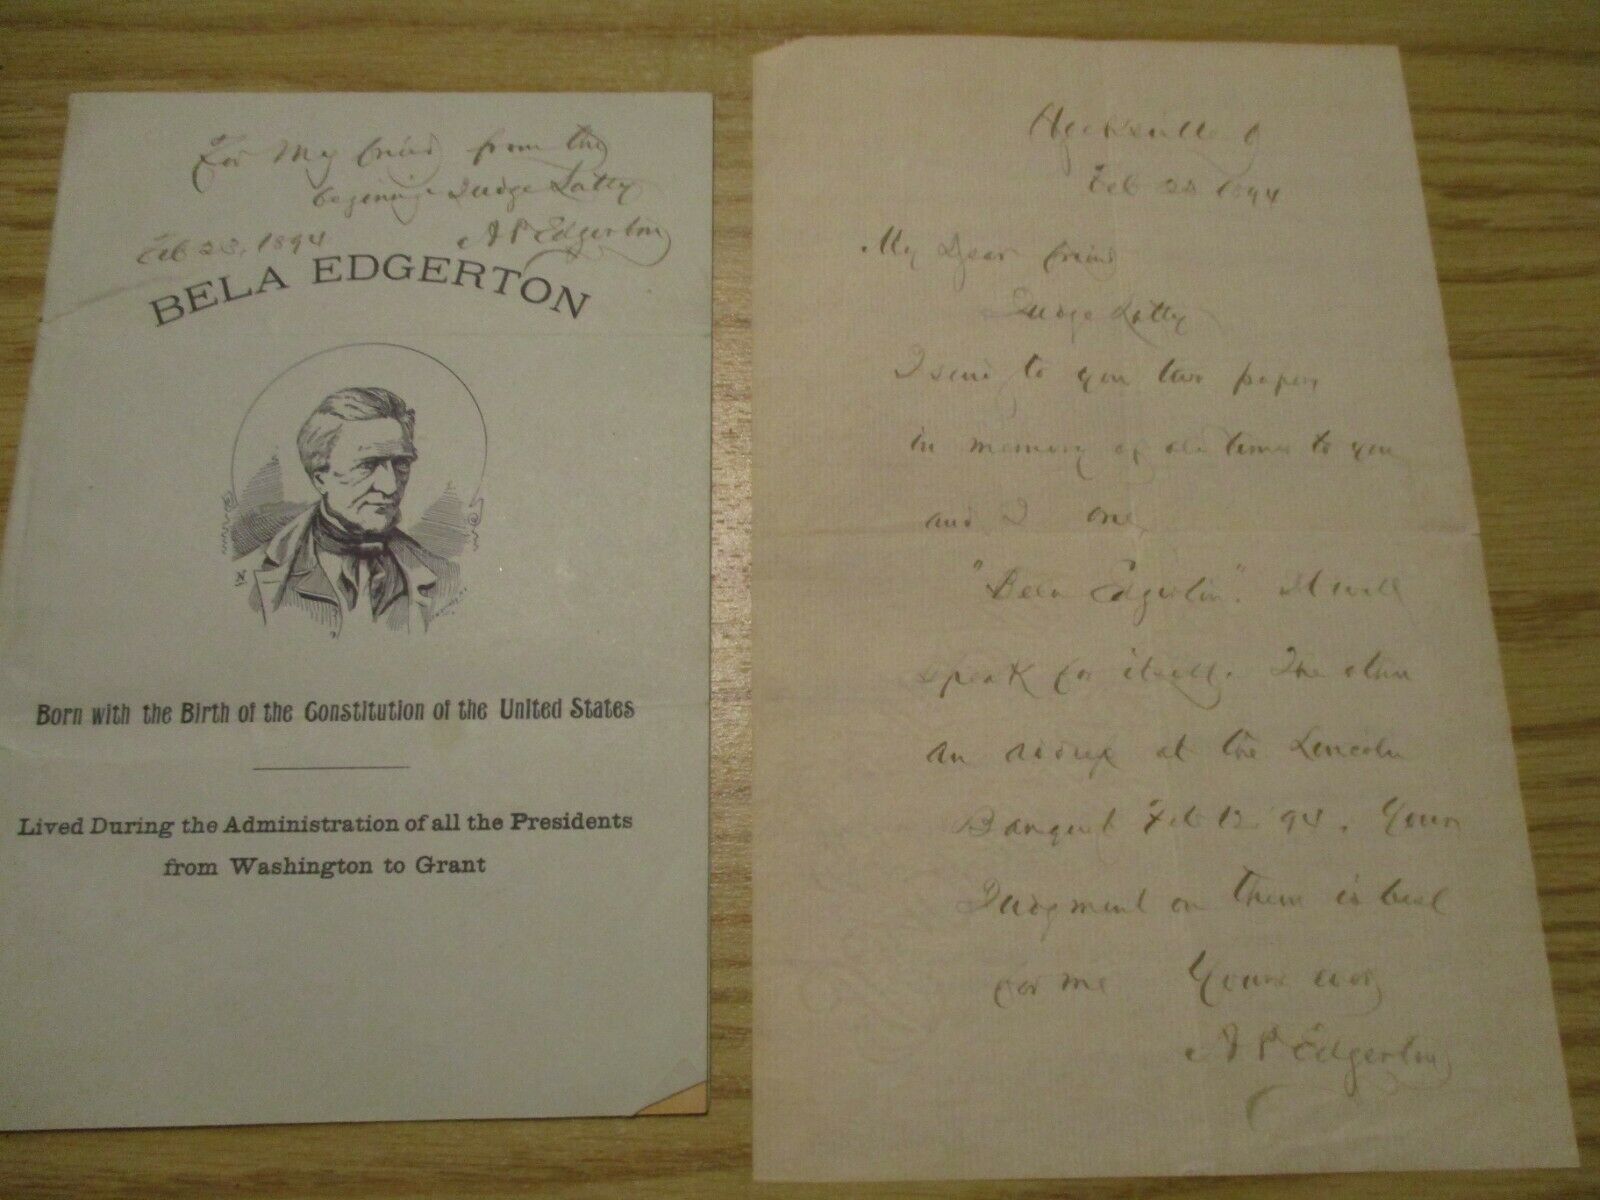 For My friend from the
beginning Judge Latty
Feb 23, 1894 A P Edgerton
BELA EDGERTON
Born with the Birth of the Constitution of the United States
Lived During the Administration of all the Presidents
from Washington to Grant
Hicksville O
Feb 23 1894
My Dear friend
Judge Latty
I send to you two papers
in memory of old times to you
and I one
"Bela Edgerton". It will
speak for itself. The other
an at the Lincoln
Banquet Feb 12 94. Your
Judgment on them is best
for me Yours
A P Edgerton